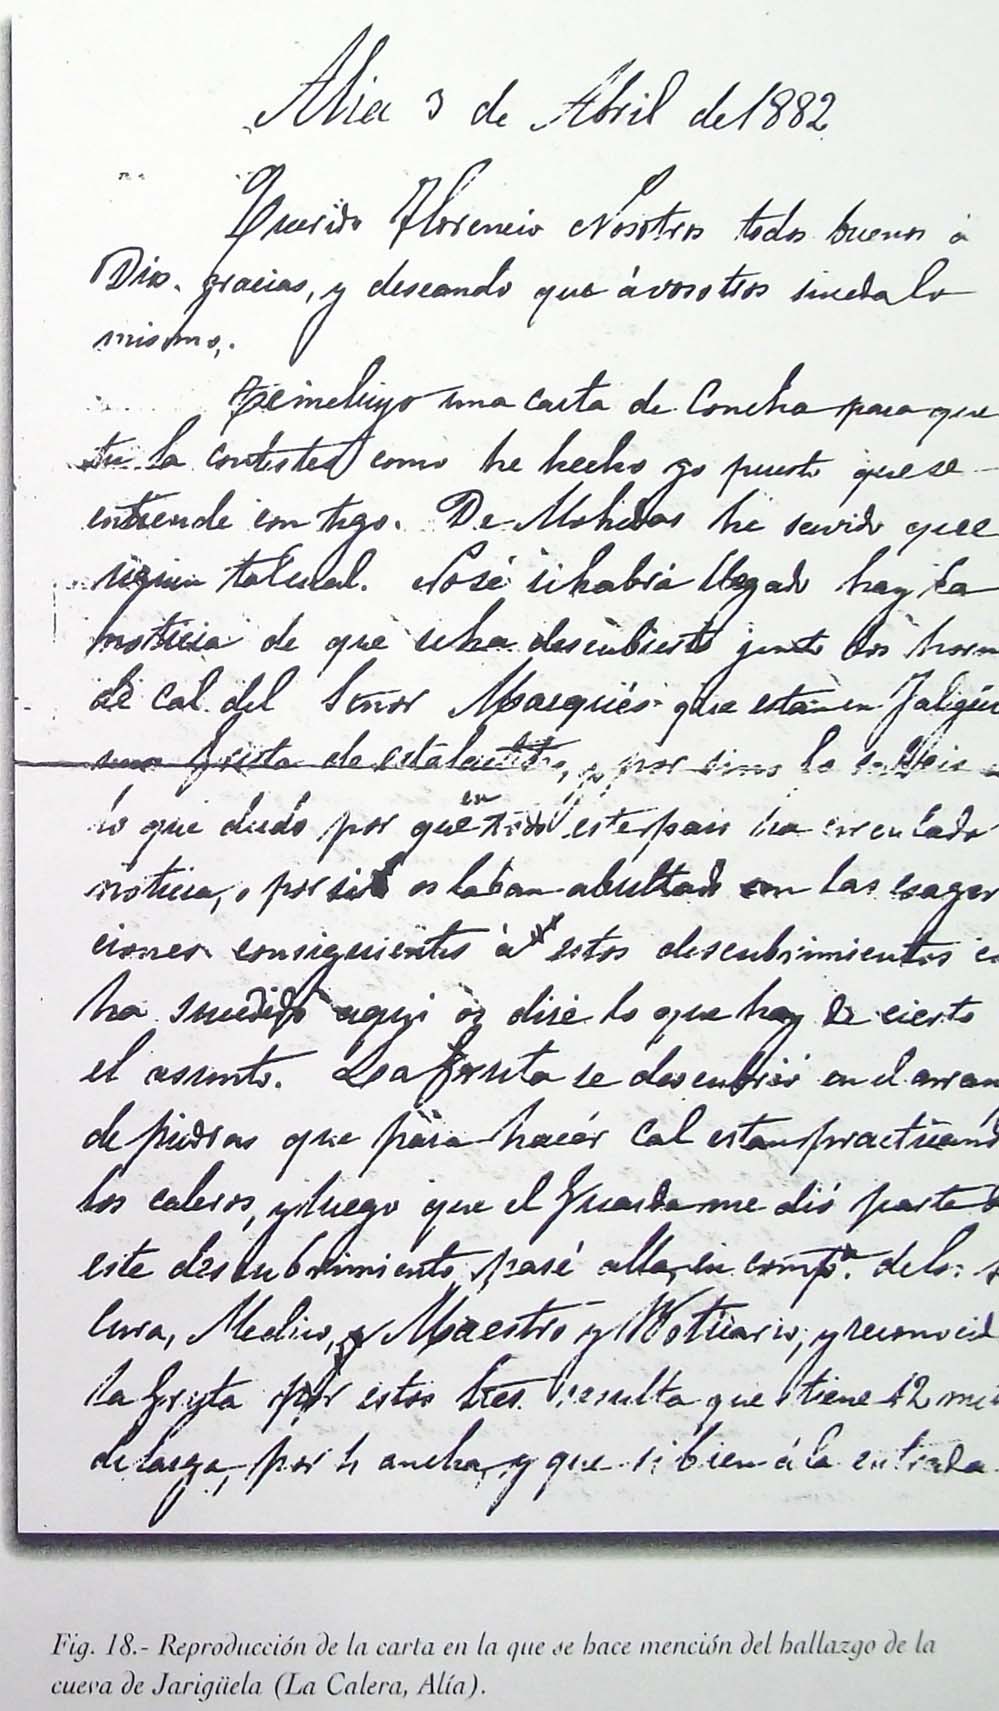 Alia 3 de Abril de 1882
Querido Florencio Nosotros todos buenos á
Dios gracias, y deseando que á vosotros suceda lo
mismo.
Te incluyo una carta de Concha para que
tu la contestes como he hecho yo puesto que se
entiende contigo. De Mohedas he savido que
siguen tal cual. No sé si habrá llegado hay la
noticia de que se ha descubierto junto los horn
de cal del Señor Marqués que estan en Jaligüe
una gruta de estalactitas, y por si no lo sabeis
lo que dudo por que en todo este pais ha circulado
noticia, o por si os la dan abultada con las exager
ciones consiguientes á estos descubrimientos c
ha sucedido aqui os diré lo que hay de cierto
el asunto. La gruta se descubrió en el arran
de piedras que para hacer cal estan practicand
los caleros, y luego que el Guarda me dió parte d
este descubrimiento, pasé alla, en compª. de los
Cura, Medico, y Maestro y Boticario, y reconocid
la gruta por estos tres resulta que tiene 12 me
de larga, por 4 ancha, y que si bien á la entrada
Fig. 18.- Reproducción de la carta en la que se hace mención del hallazgo de la
cueva de Jarigüela (La Calera, Alía).